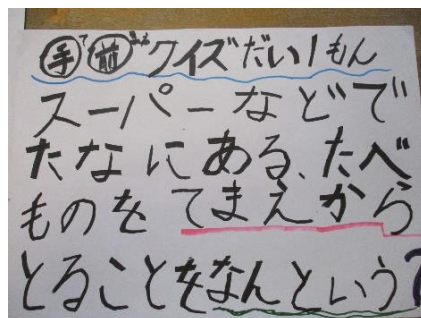 手前クイズだい1もん
スーパーなどで
たなにある、たべ
ものをてまえから
とることをなんという?